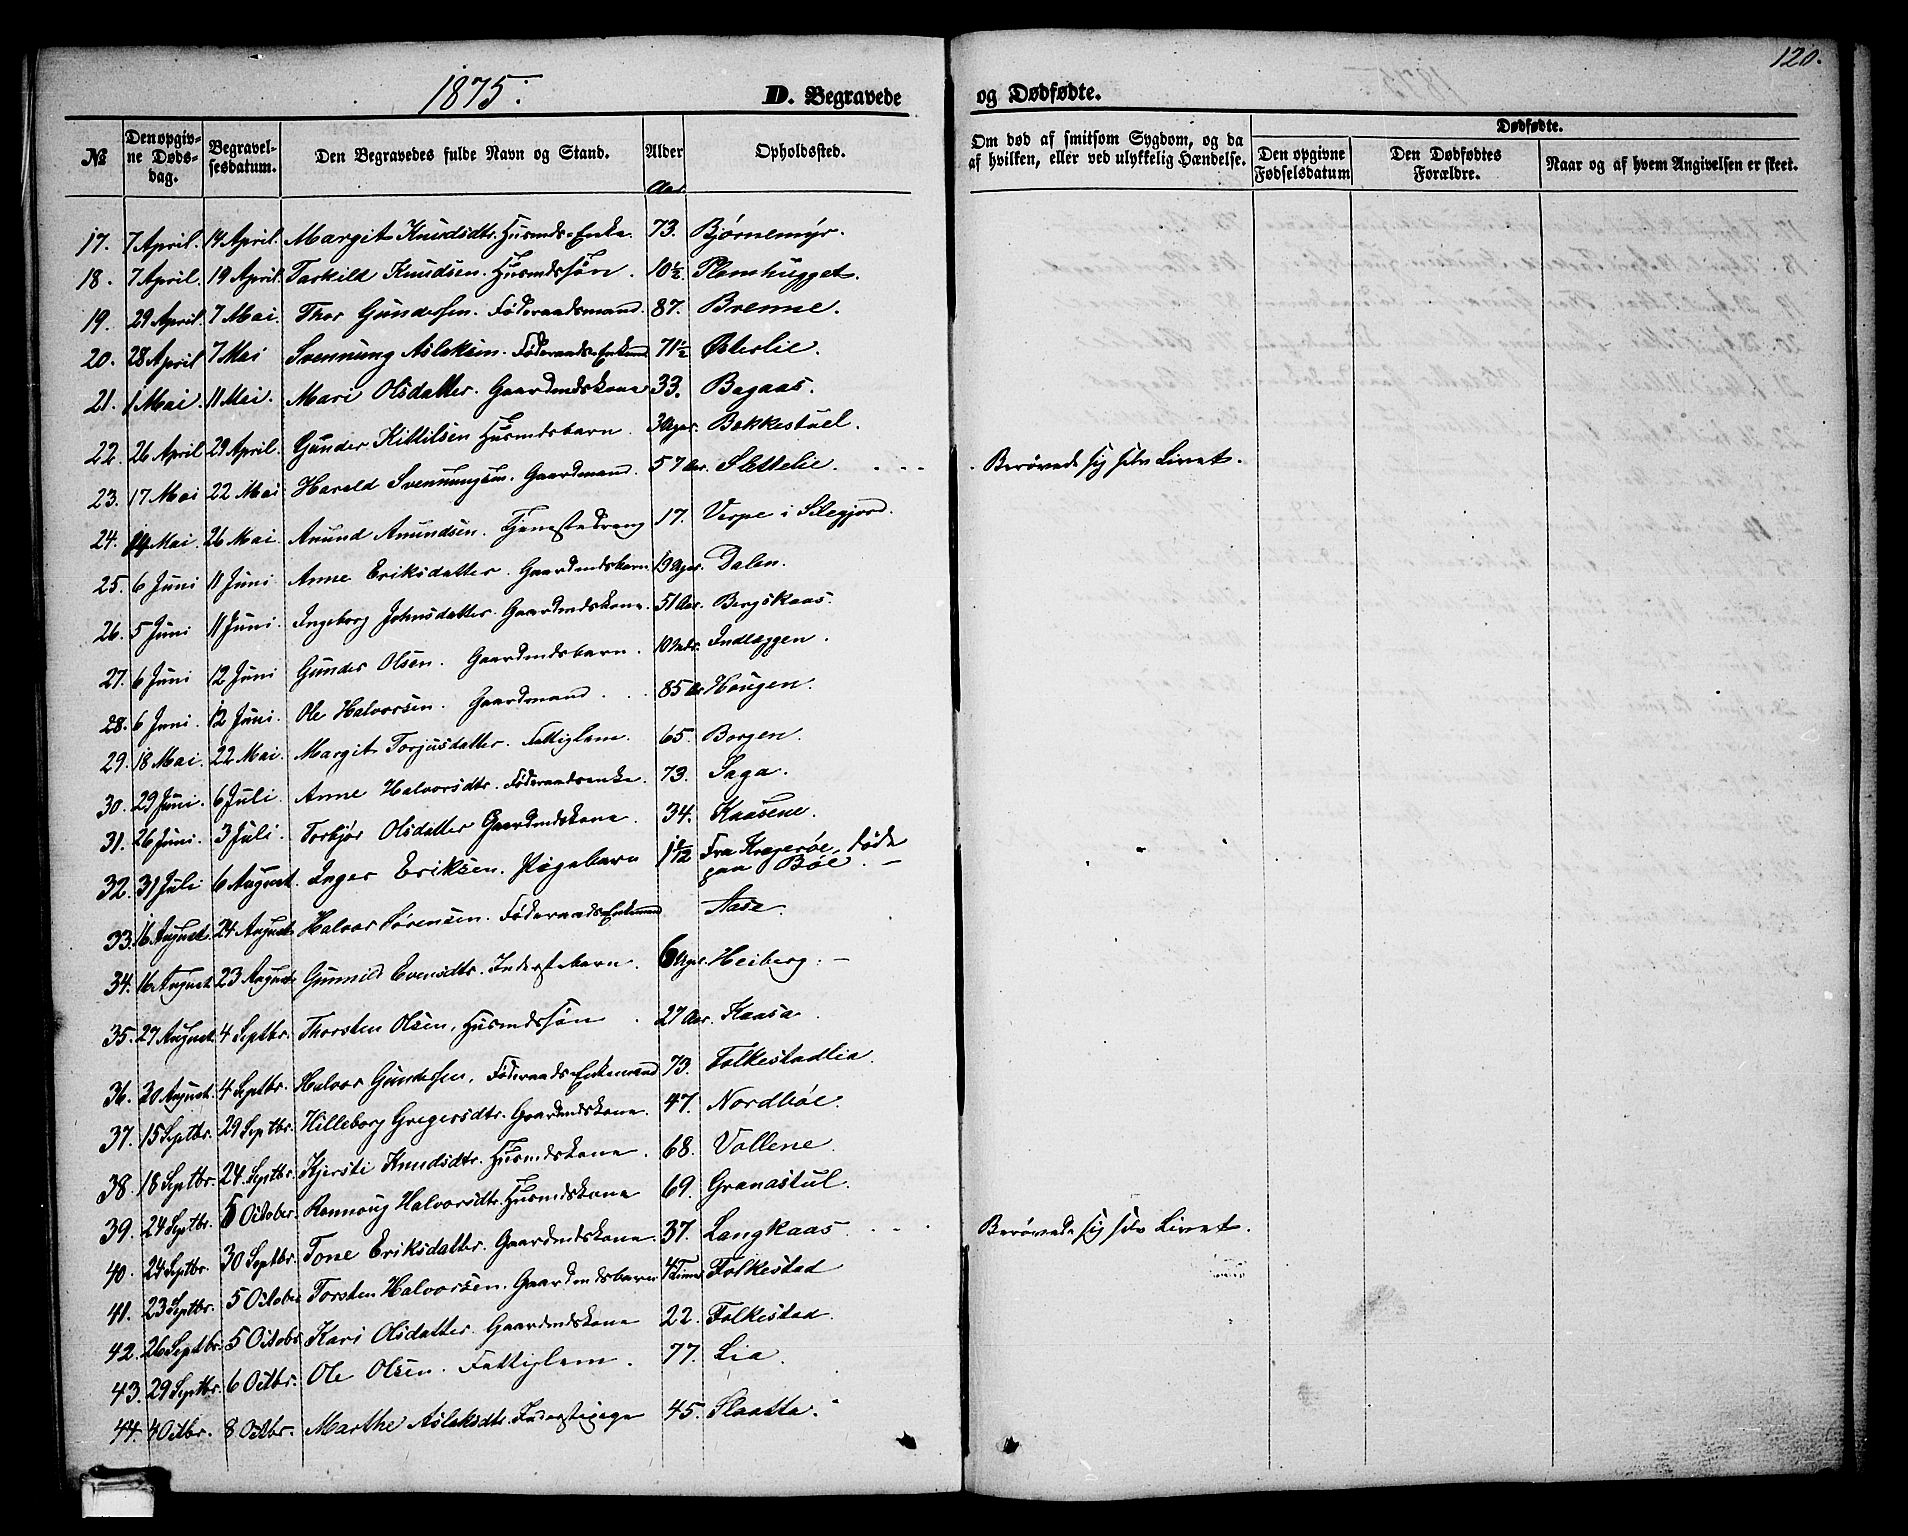 1875.
D. Begravede
og Dødfødte.
120.
№
Den opgivne Døds-dag.
Begravel-sesdatum.
Den Begravedes fulde Navn og Stand.
Alder
Opholdssted.
Om død af smitsom Sygdom, og da af hvilken, eller ved ulykkelig Hændelse.
Dødfødte.
Den opgivne Fødselsdatum
Den Dødfødtes Forældre.
Naar og af hvem Angivelsen er skeet.
Aar
17. 7 April. 14 April. Margit Knudsdtr. Husmds-Enke. 73. Bjørnemyr.
18. 7 April. 19 April. Tarkild Knudsen. Husmdssøn. 10½. Plomhugget.
19. 29 April. 7 Mai. Thor Gundersen. Føderaadsmand. 87. Brenne.
20. 28 April 7 Mai Svennung Aslaksen. Føderaads-Enkemd 71½ Østerlie.
21. 1 Mai. 11 Mai. Mari Olsdatter. Gaardmdskone 33. Bagaas.
22. 26 April 29 April. Gunder Kittilsen Husmdsbarn. 3 Uger. Bakkestuel.
23. 17 Mai 22 Mai Harald Svennungsen. Gaardmand. 57 Aar. Slettelie. Berøvede sig selv Livet.
24. 14 Mai. 26 Mai. Anund Anundsen. Tjenestedreng 17. Verpe i Silegjord.
25. 6 Juni 11 Juni Anne Eriksdatter. Gaardmdsbarn. 13 Uger. Dalen.
26. 5 Juni 11 Juni. Ingeborg Johnsdatter. Gaardmdskone. 51 Aar. Bergskaas.
27. 6 Juni 12 Juni Gunder Olsen. Gaardmdsbarn. 10 Mdr. Indlaggen.
28. 6 Juni. 12 Juni. Ole Halvorsen. Gaardmand. 85 Aar Haugen.
29. 18 Mai. 22 Mai. Margit Torjusdatter. Fattiglem. 65. Borgen.
30. 29 Juni. 6 Juli. Anne Halvorsdtr. Føderaadsenke. 73. Saga.
31. 26 Juni. 3 Juli. Torbjør Olsdatter Gaardmdskone. 34. Kaasene.
32. 31 Juli 6 August. Inger Eriksen. Pigebarn 1 1/12 Fra Kragerøe, døde
paa Bøe.
33. 16 August 24 August Halvor Sørensen. Føderaads-Enkemand Aase.
34. 16 August 23 August Gunnild Evensdtr. Inderstebarn. 6 Uger Heiberg.
35. 27 August. 4 Septbr. Thorsten Olsen, Husmdssøn. 27 Aar. Kaasa.
36. 30 August. 4 Septbr. Halvor Gundersen. Føderaads-Enkemand 73. Folkestadlia.
37. 15 Septbr. 29 Septbr. Hilleborg Gregersdtr. Gaardmdskone. 47. Nordbøe.
38. 18 Septbr. 24 Septbr. Kjersti Knudsdtr. Husmdskone. 68. Vallene.
39. 24 Septbr. 5 October. Rannoug Halvorsdtr. Husmdskone 69. Granastul.
40. 24 Septbr. 30 Septbr. Tone Eriksdatter. Gaardmdskone. 37. Langkaas. Berøvede sig selv Livet.
41. 23 Septbr. 5 October Torsten Halvorsen. Gaardmdsbarn 4 Timer Folkestad
42. 26 Septbr. 5 October Kari Olsdatter. Gaardmdskone 22. Folkestad.
43. 29 Septbr. 6 Octbr. Ole Olsen. Fattiglem. 77. Lia.
44. 4 Octbr. 8 Octbr. Marthe Aslaksdtr. Inderstepige 45. Slaatta.